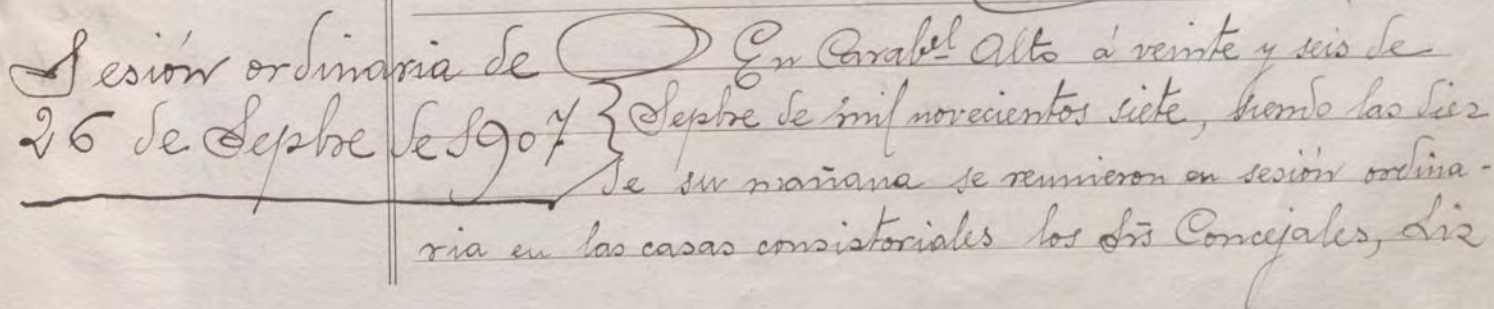 Sesión ordinaria de
26 de Sepbre de 1907
En Carabel Alto á veinte y seis de
Sepbre de mil novecientos siete, siendo las diez
de su mañana se reunieron en sesión ordina-
ria en las casas consistoriales los Srs Concejales, Diz